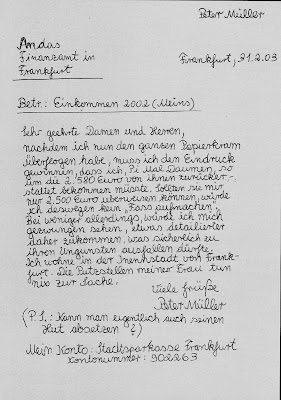 Peter Müller
Andas
Finanzamt in
Frankfurt
Frankfurt, 31.2.03
Betr.: Einkommen 2002 (Meins)
Sehr geehrte Damen und Herren,
nachdem ich nun den ganzen Papierkram
überflogen habe, muss ich den Eindruck
gewinnen, dass ich, Pi Mal Daumen, so
um die 2.580 Euro von ihnen zurücker-
stattet bekommen müsste. Sollten sie mir
nur 2.500 Euro überweisen können, würde
ich deswegen kein „Fass aufmachen".
Bei weniger allerdings, würde ich mich
gezwungen sehen, etwas detailierter
daher zukommen, was sicherlich zu
ihren Ungunsten ausfallen dürfte.
Ich wohne in der Irrenhstadt von Frank-
furt. Die Putzstellen meiner Frau tun
nix zur Sache.
Viele Grüße
Peter Müller
(P.S.: Kann man eigentlich auch seinen
Hut absetzen?)
Mein Konto: Stadtsparkasse Frankfurt
Kontonummer: 902263